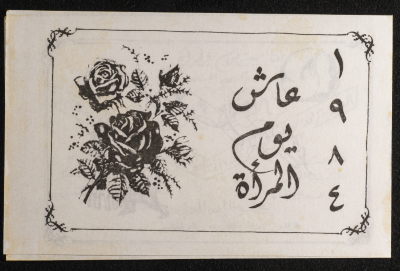 عاش
يوم
المرأة
١
٩
٨
٤